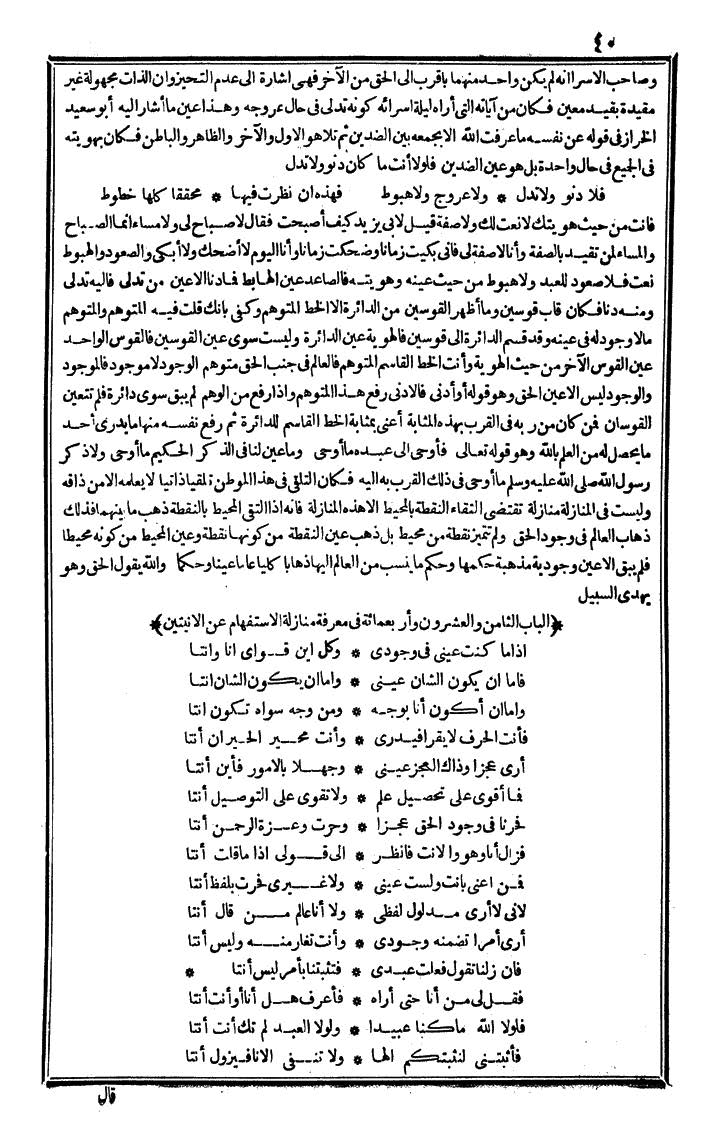 ٤٠
وصاحب الاسرا انه لم يكن واحد منهما باقرب الى الحق من الآخر فهى اشارة الى عدم التحيز وان الذات مجهولة غير
مقيدة بقيد معين فكان من آياته التى أراه ليلة اسرائه كونه تدلى فى حال عروجه وهذا عين ما أشار اليه أبو سعيد
الخراز فى قوله عن نفسه ما عرفت الله الا بجمعه بين الضدين ثم تلا هو الاول والآخر والظاهر والباطن فكان بهويته
فى الجميع فى حال واحدة بل هو عين الضدين فلولا أنت ما كان دنو ولا تدل
فلا دنو ولا تدل * ولا عروج ولا هبوط فهذه ان نظرت فيها * محققا كلها خطوط
فانت من حيث هويتك لا نعت لك ولا صفة قيل لابى يزيد كيف أصبحت فقال لا صباح لى ولا مساء انما الصباح
والمساء لمن تقيد بالصفة وأنا لا صفة لى فانى بكيت زمانا وضحكت زمانا وأنا اليوم لا أضحك ولا أبكى والصعود والهبوط
نعت فلا صعود للعبد ولا هبوط من حيث عينه وهويته فالصاعد عين الهابط فما دنا الا عين من تدلى فاليه تدلى
ومنه دنا فكان قاب قوسين وما أظهر القوسين من الدائرة الا الخط المتوهم وكفى بانك قلت فيه المتوهم والمتوهم
مالا وجود له فى عينه وقد قسم الدائرة الى قوسين فالهوية عين الدائرة وليست سوى عين القوسين فالقوس الواحد
عين القوس الآخر من حيث الهوية وأنت الخط القاسم المتوهم فالعالم فى جنب الحق متوهم الوجود لا موجود فالموجود
والوجود ليس الا عين الحق وهو قوله أو أدنى فالادنى رفع هذا المتوهم واذا رفع من الوهم لم يبق سوى دائرة فلم تتعين
القوسان فمن كان من ربه فى القرب بهذه المثابة أعنى بمثابة الخط القاسم للدائرة ثم رفع نفسه منها ما يدرى أحد
ما يحصل له من العلم بالله وهو قوله تعالى فأوحى الى عبده ما أوحى وما عين لنا فى الذكر الحكيم ما أوحى ولا ذكر
رسول الله صلى الله عليه وسلم ما أوحى فى ذلك القرب به اليه فكان التلقى فى هذا الموطن تلقيا ذاتيا لا يعلمه الا من ذاقه
وليست فى المنازلة منازلة تقتضى التقاء النقطة بالمحيط الا هذه المنازلة فانه اذا التقى المحيط بالنقطة ذهب ما بينهما فذلك
ذهاب العالم فى وجود الحق ولم تتميز نقطة من محيط بل ذهب عين النقطة من كونها نقطة وعين المحيط من كونه محيطا
فلم يبق الا عين وجودية مذهبة حكمها وحكم ما ينسب من العالم اليها ذهابا كليا عاما عينا وحكما والله يقول الحق وهو
يهدى السبيل
﴿الباب الثامن والعشرون وأربعمائة فى معرفة منازلة الاستفهام عن الانيتين﴾
اذا ما كنت عينى فى وجودى * وكل اين قواى انا وانتا
فاما ان يكون الشان عينى * واما ان يكون الشان انتا
واما ان أكون أنا بوجه * ومن وجه سواه تكون انتا
فأنت الحرف لا يقرا فيدرى * وأنت محير الحيران أنتا
أرى عجزا وذاك العجز عينى * وجهلا بالامور فأين أنتا
فما أقوى على تحصيل علم * ولا تقوى على التوصيل أنتا
فحرنا فى وجود الحق عجزا * وحرت وعزة الرحمن أنتا
فزال أنا وهو والا نت فانظر * الى قولى اذا ما قات أنتا
فمن اعنى بانت ولست عينى * ولا غيرى فحرت بلفظ أنتا
لانى لا أرى مدلول لفظى * ولا أنا عالم من قال أنتا
أرى أمرا تضمنه وجودى * وأنت تغار منه وليس أنتا
فان زلنا تقول فعلت عبدى * فتثبتنا بأمر ليس أنتا *
فقل لى من أنا حتى أراه * فأعرف هل أنا أو أنت أنتا
فلولا الله ما كنا عبيدا * ولولا العبد لم تك أنت أنتا
فأثبتنى لنثبتكم الها * ولا تنفى الانا فيزول أنتا
قال